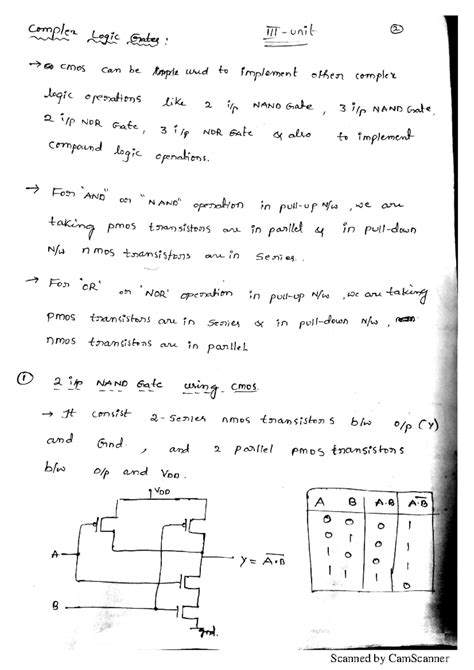 Complex Logic Gates :
III - unit
2
→ CMOS can be used to implement other complex
logic operations like 2 i/p NAND Gate, 3 i/p NAND Gate,
2 i/p NOR Gate, 3 i/p NOR Gate & also to implement
compound logic operations.
→ For "AND" or "NAND" operation in pull-up N/w, we are
taking pmos transistors are in parllel & in pull-down
N/w nmos transistors are in series.
→ For 'OR' or 'NOR' operation in pull-up N/w, we are taking
pmos transistors are in series & in pull-down N/w,
nmos transistors are in parllel
① 2 i/p NAND Gate using CMOS.
→ It consist 2-series nmos transistors b/w o/p (Y)
and Gnd, and 2 parllel pmos transistors
b/w o/p and VDD.
VDD
A
B
Y = \overline{A·B}
Gnd.
A B A·B \overline{A·B}
0 0 0 1
0 1 0 1
1 0 0 1
1 1 1 0
Scanned by CamScanner